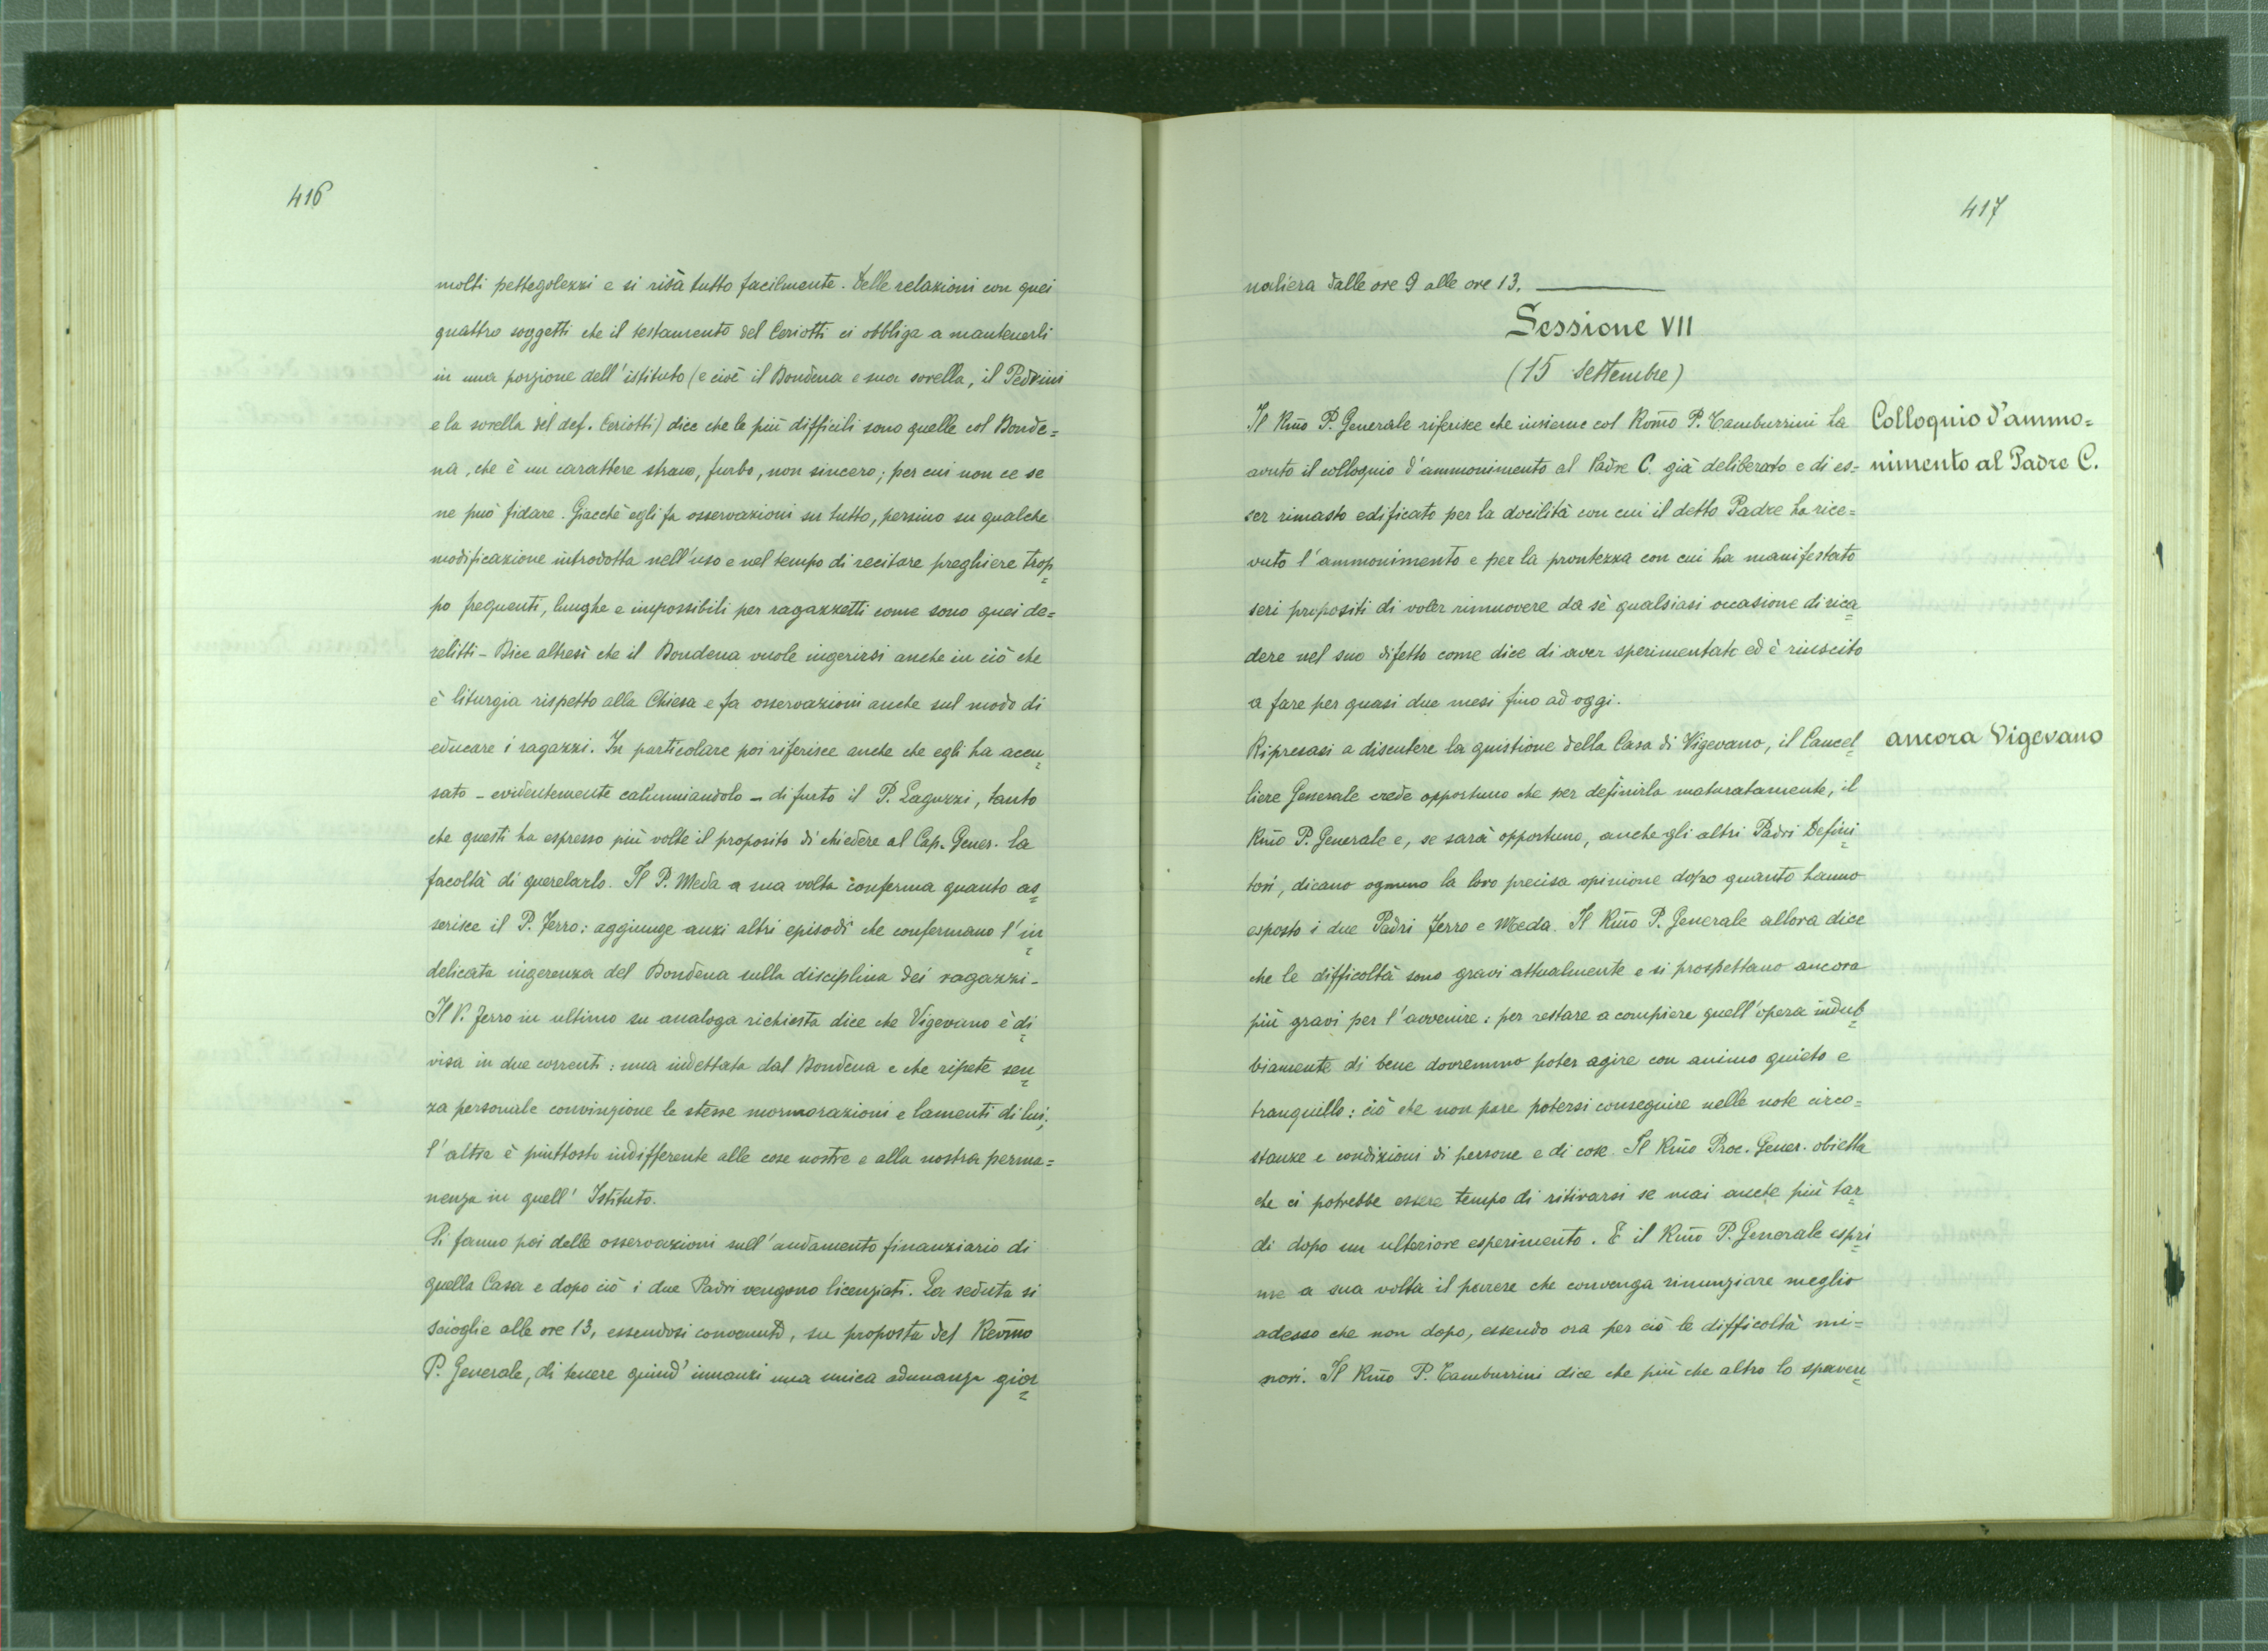 416
molti pettegolezzi e si risà tutto facilmente. Delle relazioni con quei
quattro soggetti che il testamento del Ceriotti ci obbliga a mantenerli
in una porzione dell'istituto (e cioè il Bondena e sua sorella, il Pedrini
e la sorella del def. Ceriotti) dice che le più difficili sono quelle col Bonde=
na, che è un carattere strano, furbo, non sincero; per cui non ce se
ne può fidare. Giacchè egli fa osservazioni su tutto, persino su qualche
modificazione introdotta nell'uso e nel tempo di recitare preghiere trop=
po frequenti, lunghe e impossibili per ragazzetti come sono quei de=
relitti - Dice altresì che il Bondena vuole ingerirsi anche in ciò che
è liturgia rispetto alla Chiesa e fa osservazioni anche sul modo di
educare i ragazzi. In particolare poi riferisce anche che egli ha accu=
sato - evidentemente calunniandolo - di furto il P. Laguzzi, tanto
che questi ha espresso più volte il proposito di chiedere al Cap. Gener. la
facoltà di querelarlo. Il P. Meda a sua volta conferma quanto as=
serisce il P. Ferro: aggiunge anzi altri episodi che confermano l'in=
delicata ingerenza del Bondena sulla disciplina dei ragazzi -
Il P. Ferro in ultimo su analoga richiesta dice che Vigevano è di=
visa in due correnti: una indettata dal Bondena e che ripete sen=
za personale convinzione le stesse mormorazioni e lamenti di lui;
l'altra è piuttosto indifferente alle cose nostre e alla nostra perma=
nenza in quell' Istituto.
Si fanno poi delle osservazioni sull'andamento finanziario di
quella Casa e dopo ciò i due Padri vengono licenziati. La seduta si
scioglie alle ore 13, essendosi convenuto, su proposta del Revm̃o
P. Generale, di tenere quind'innanzi una unica adunanza gior=
417
naliera dalle ore 9 alle ore 13.
Sessione VII
(15 Settembre)
Il Rm̃o P. Generale riferisce che insieme col Rom̃o P. Tamburrini ha
Colloquio d'ammo=
avuto il colloquio d'ammonimento al Padre C. già deliberato e di es=
nimento al Padre C.
ser rimasto edificato per la docilità con cui il detto Padre ha rice=
vuto l'ammonimento e per la prontezza con cui ha manifestato
seri propositi di voler rimuovere da sè qualsiasi occasione di rica=
dere nel suo difetto come dice di aver sperimentato ed è riuscito
a fare per quasi due mesi fino ad oggi.
Ripresasi a discutere la quistione della Casa di Vigevano, il Cancel=
ancora Vigevano
liere Generale crede opportuno che per definirla maturatamente, il
Rm̃o P. Generale e, se sarà opportuno, anche gli altri Padri Defini=
tori, dicano ognuno la loro precisa opinione dopo quanto hanno
esposto i due Padri Ferro e Meda. Il Rm̃o P. Generale allora dice
che le difficoltà sono gravi attualmente e si prospettano ancora
più gravi per l'avvenire: per restare a compiere quell'opera indub=
biamente di bene dovremmo poter agire con animo quieto e
tranquillo: ciò che non pare potersi conseguire nelle note circo=
stanze e condizioni di persone e di cose. Il Rm̃o Proc. Gener. obietta
che ci potrebbe essere tempo di ritirarsi se mai anche più tar=
di dopo un ulteriore esperimento. E il Rm̃o P. Generale espri=
me a sua volta il parere che convenga rinunziare meglio
adesso che non dopo, essendo ora per ciò le difficoltà mi=
nori. Il Rm̃o P. Tamburrini dice che più che altro lo spaven=